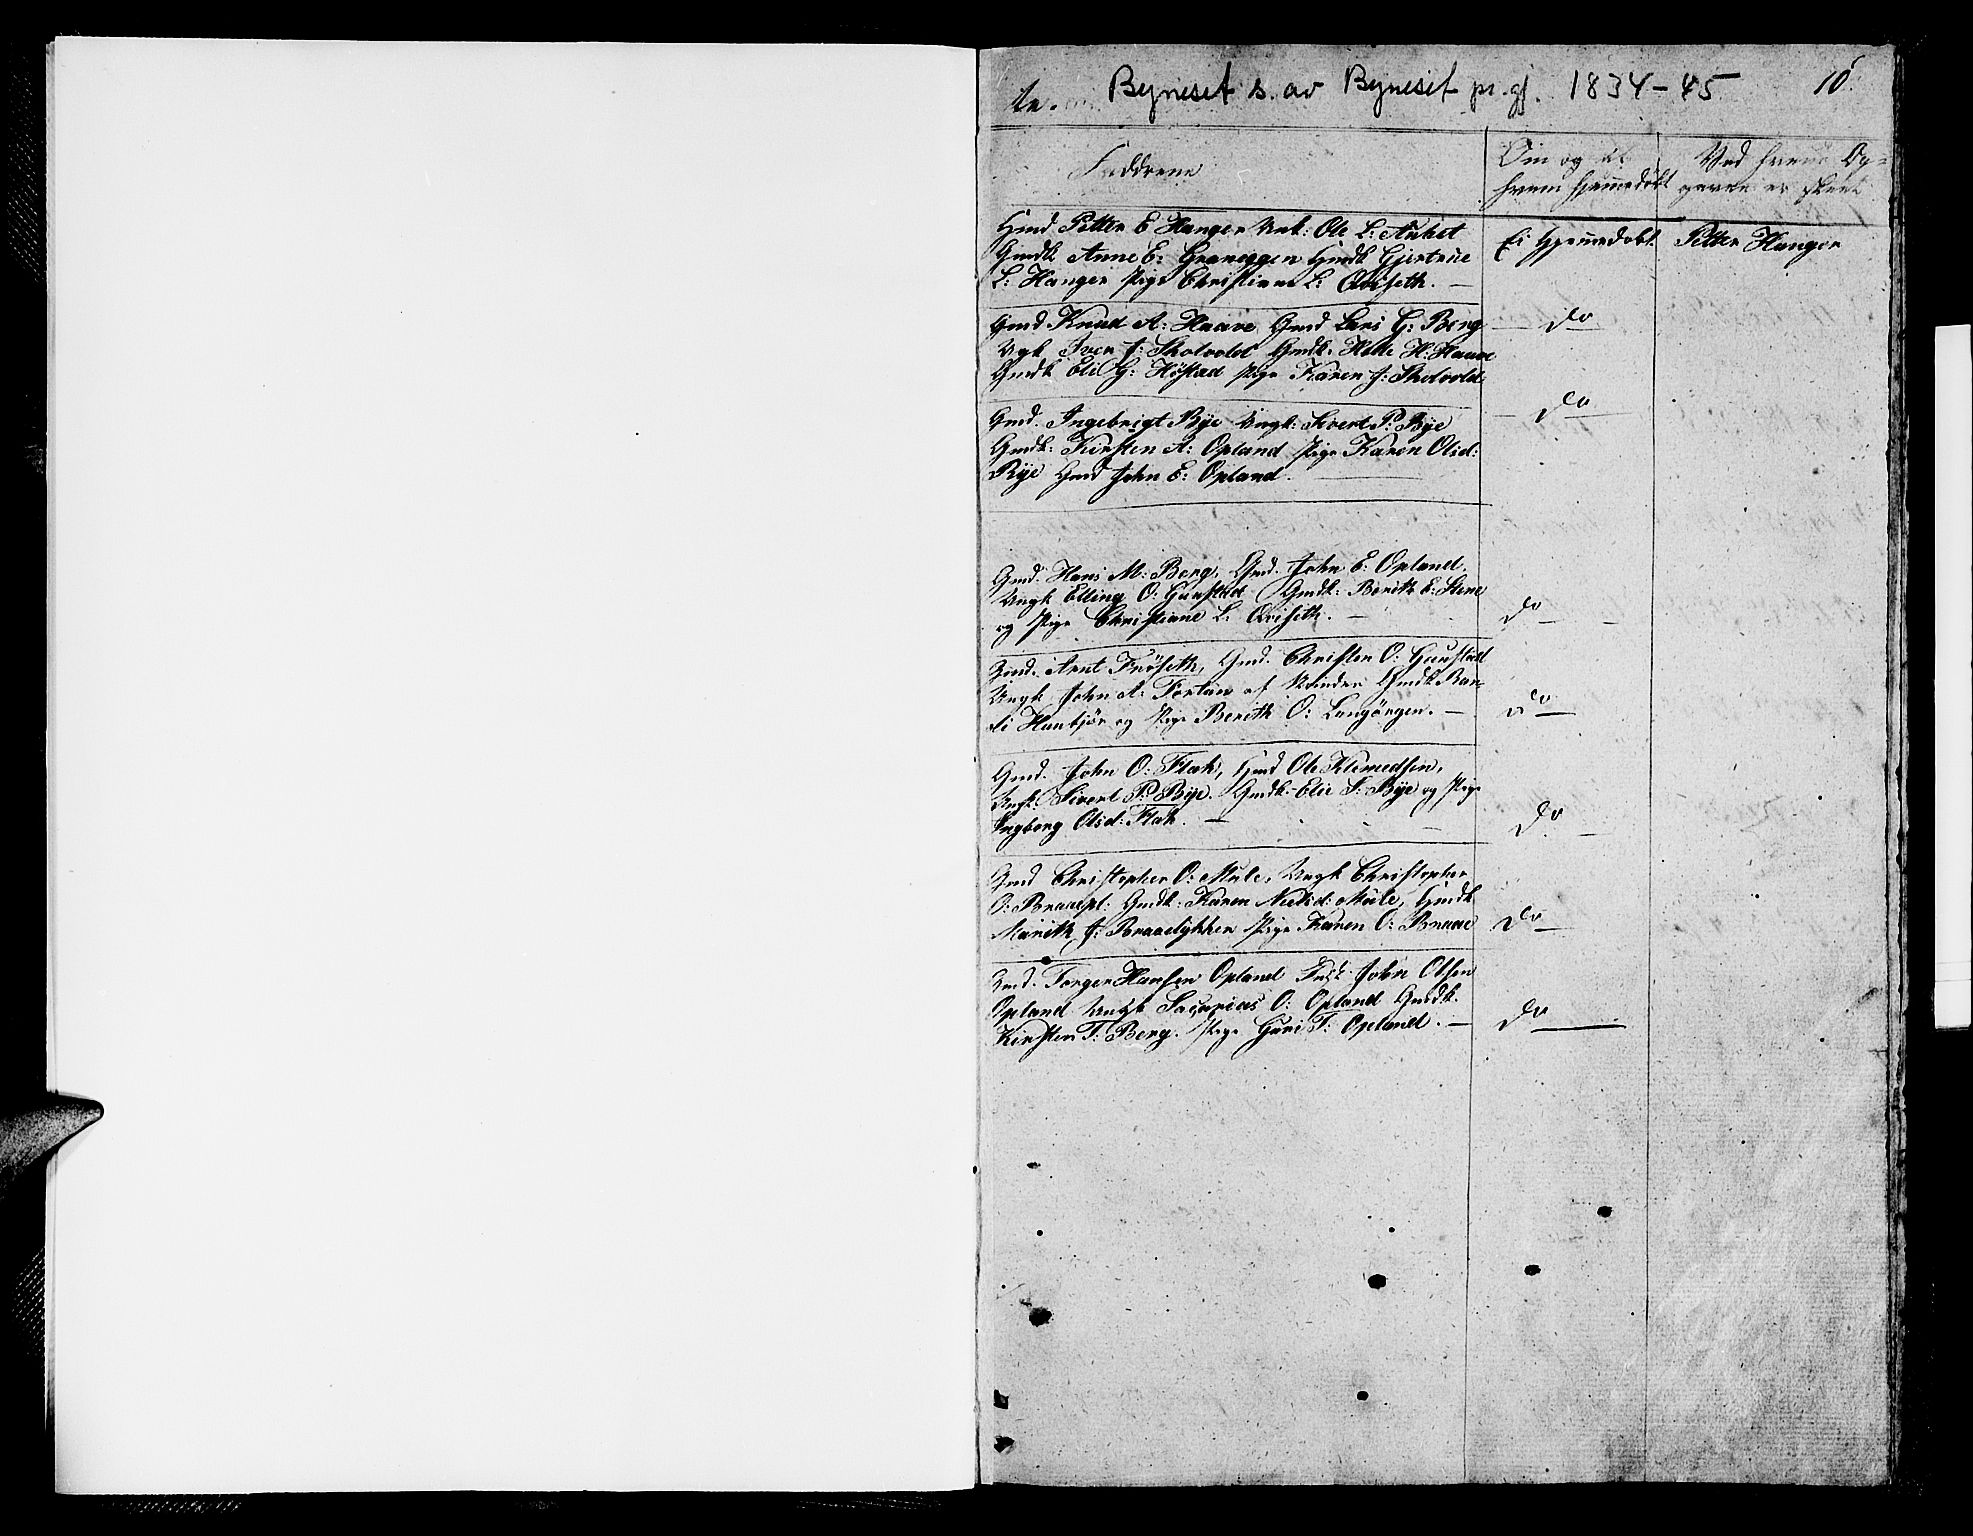 te.
Byneset s. av Byneset pr. gj. 1834-45
10
Faddrene
Om og af
hvem hjemmedøbt
Ved hvem Op=
gaven er skeet
Gmd Petter E Hanger Unk: Ole L:
Gmdk Anne E: Graneggen Gmdk Gjertrue
L: Hanger Pige Christiane L: Qviseth. —
Ei Hjemmedøbt
Petter Hanger
Gmd Knud A: Haave Gmd Lars G: Berg
Ugk Iver J: Skolvold Gmdk. H: Haave
Gmdk Eli G: Høstad Pige Karen J: Skolvold.
— Do —
Gmd. Ingebrigt Rye Ungk: Sivert P: Bye
Gmdk: Kirsten A: Opland Pige Karen Olsd:
Rye Gmd John E: Opland. —
— Do —
Gmd. Hans M: Berg, Gmd. John E: Opland.
Ungk Elling O: Gaustad Gmdk: Berith E: Stene
og Pige Christiane L: Qviseth. —
Do —
Gmd. Arnt Frøseth, Gmd. Christen O: Gaustad
Ungk John A: af Gmdk Ran-
di og Pige Berith O: Langørgen. —
Do —
Gmd. John O: Flak, Gmd Ole Klemedsen,
Ungk. Sivert P: Bye. Gmdk. Elie S: Bye og Pige
Ingborg Olsd: Flak. —
Do —
Gmd Christopher O: Mule, Ungk Christopher
O: Gmdk: Karen Mule, Gmdk
Marith J: Braaelykken Pige Karen O: Braae
Do —
Gmd. Torger Hansen Opland John Olsen
Opland Ungk Sacarias O: Opland Gmdk.
Kirsten T: Berg. Pige Guri T: Opland. —
Do —